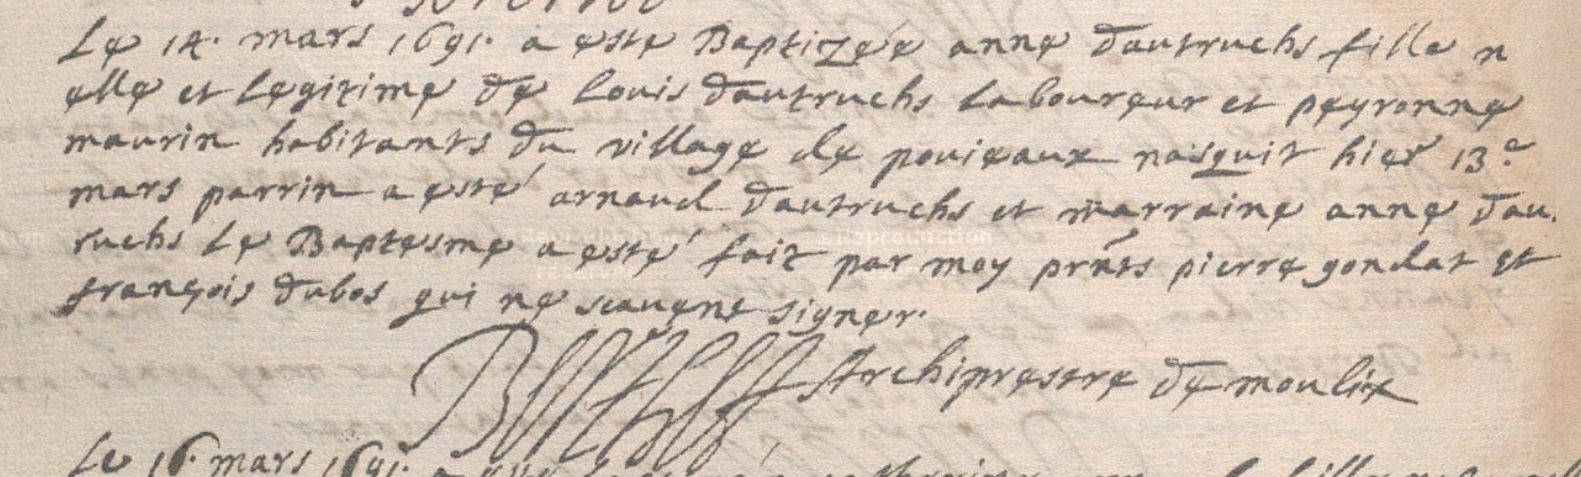 Le 14. mars 1691. a este Baptizée anne dautruchs fille n
elle et legitime de louis dautruchs laboureur et peyronne
maurin habitants du village de pouieaux nasquit hier 13e
mars parrin a esté arnaud dautruchs et marraine anne dau.
ruchs le Baptesme a esté fait par moy prñts pierre gondat et
françois dubos qui ne scavent signer.
Archiprestre de moulix
Le 16. mars 1691. a